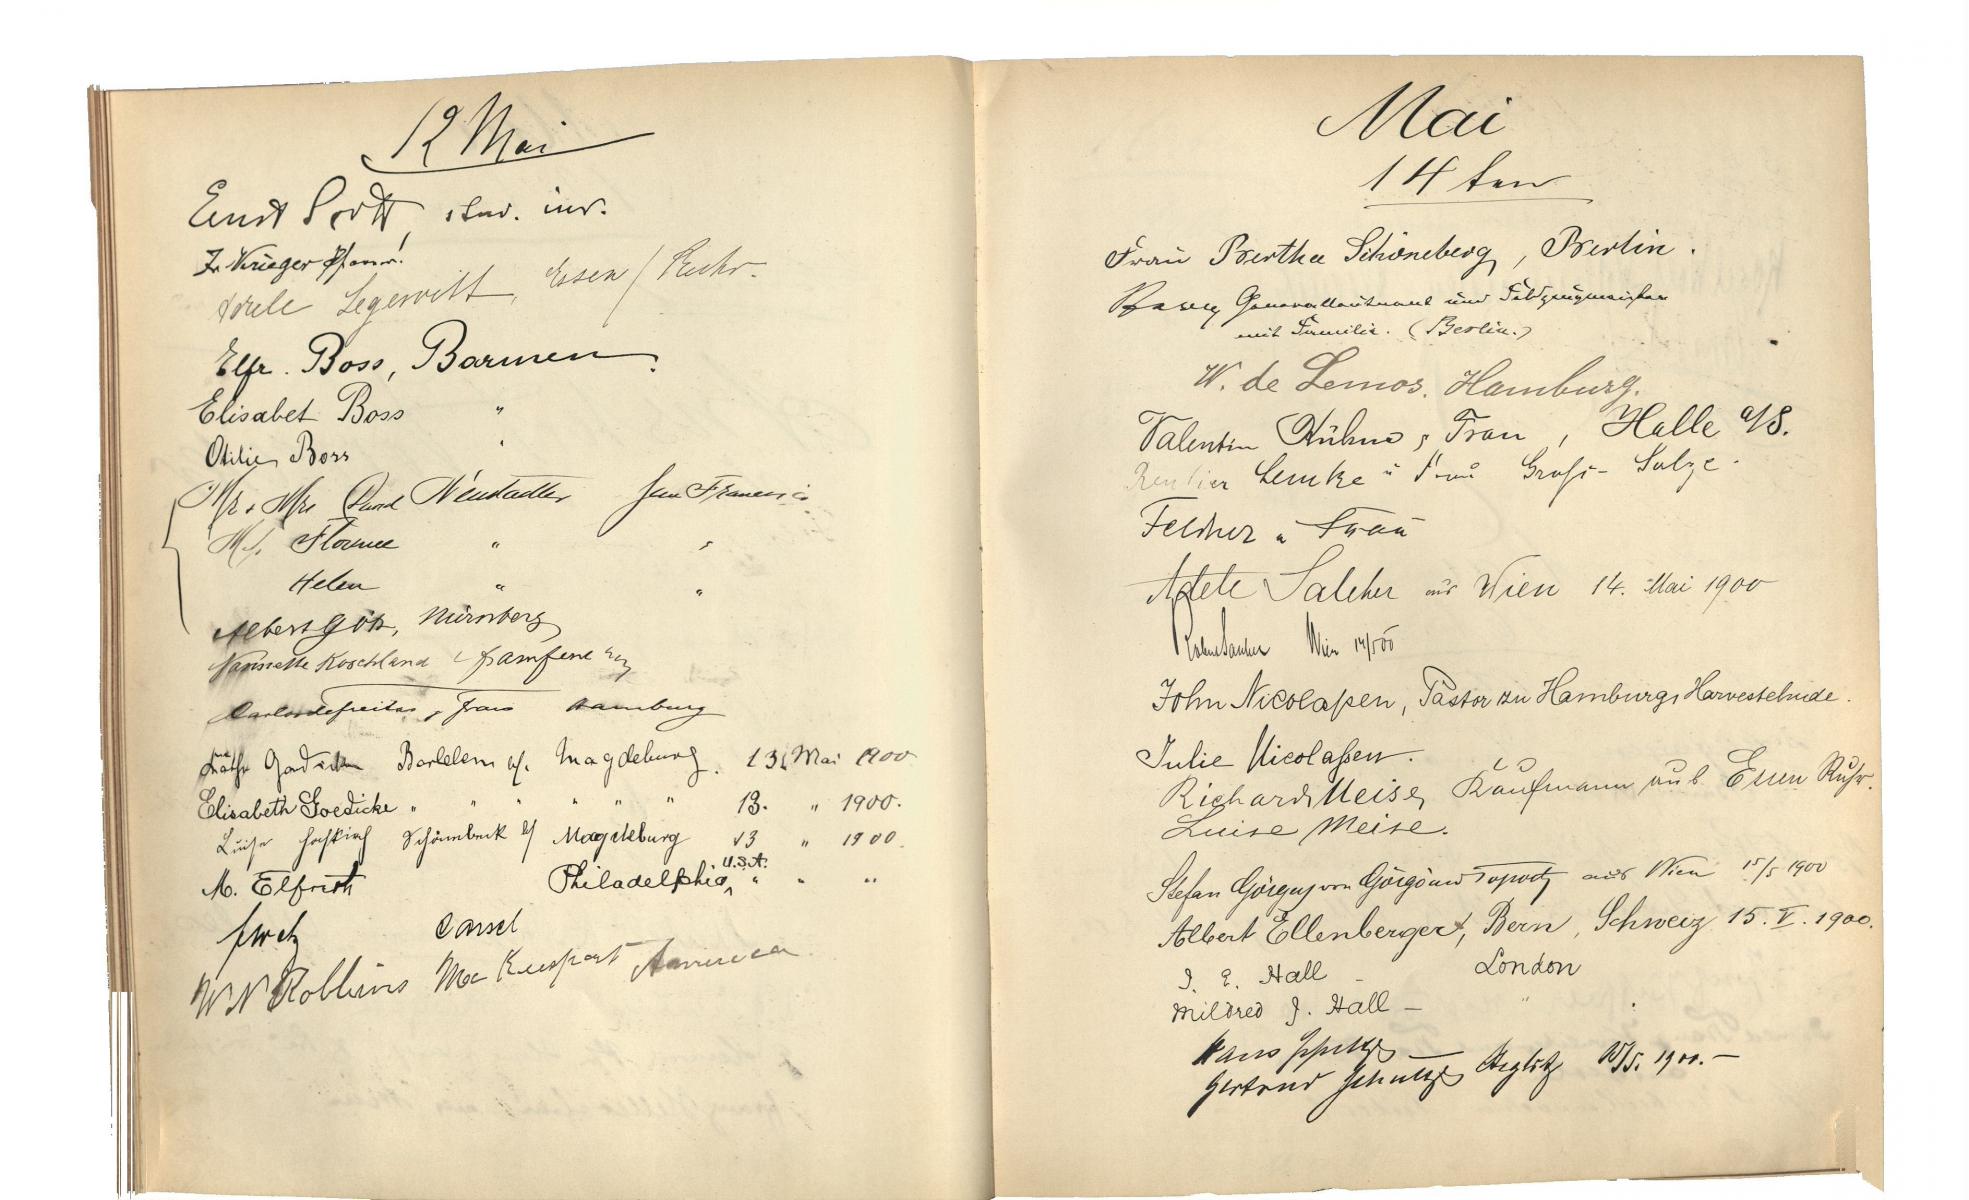 12 Mai
Ernst
Krieger
Essen / Ruhr.
Elfr. Boss, Barmen.
Elisabet Boss "
Otilie Boss "
Mr & Mrs David Neustadter San Francisco
Florence " "
Helen " "
Albert Götz, Nürnberg
Nannette Koschland
Carlos de Freitas, Frau Hamburg
Magdeburg. 13. Mai 1900
Elisabeth Goedicke " " " " " " 13. " 1900.
Luise Schönebeck b/ Magdeburg 13 " 1900.
U.S.A.
M. Elfrith Philadelphia " " "
Cassel
W N Robbins McKeesport America
Mai
14 ten
Frau Bertha Schöneberg, Berlin.
Generalleutnant und Feldzeugmeister
mit Familie. (Berlin.)
W. de Lemos. Hamburg.
Valentin Kühne & Frau, Halle a/S.
Rentier Lemke u Frau Groß-Salze.
Feldner u Frau
Adele Salcher aus Wien 14. Mai 1900
Wien 14/5 00
John Nicolassen, Pastor zu Hamburg, Harvestehude.
Julie Nicolaßen.
Richard Meise, Kaufmann aus Essen Ruhr.
Luise Meise.
Stefan Görgey von Görgö und Toporcz aus Wien 15/5 1900
Albert Ellenberger, Bern, Schweiz 15. V. 1900.
J. E. Hall - London
Mildred J. Hall - "
Hans Schultze
Gertrud Schultze 15/5. 1900.-